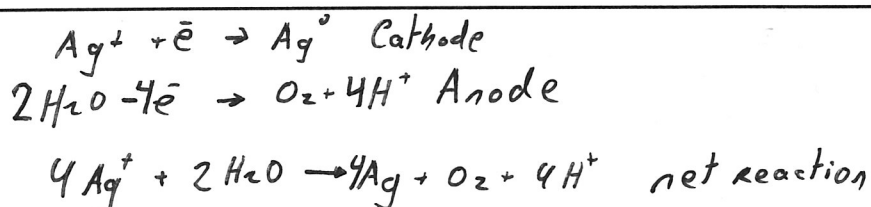 Ag⁺ + ē → Ag⁰ Cathode
2H₂O - 4ē → O₂ + 4H⁺ Anode
4Ag⁺ + 2H₂O → 4Ag + O₂ + 4H⁺ net reaction